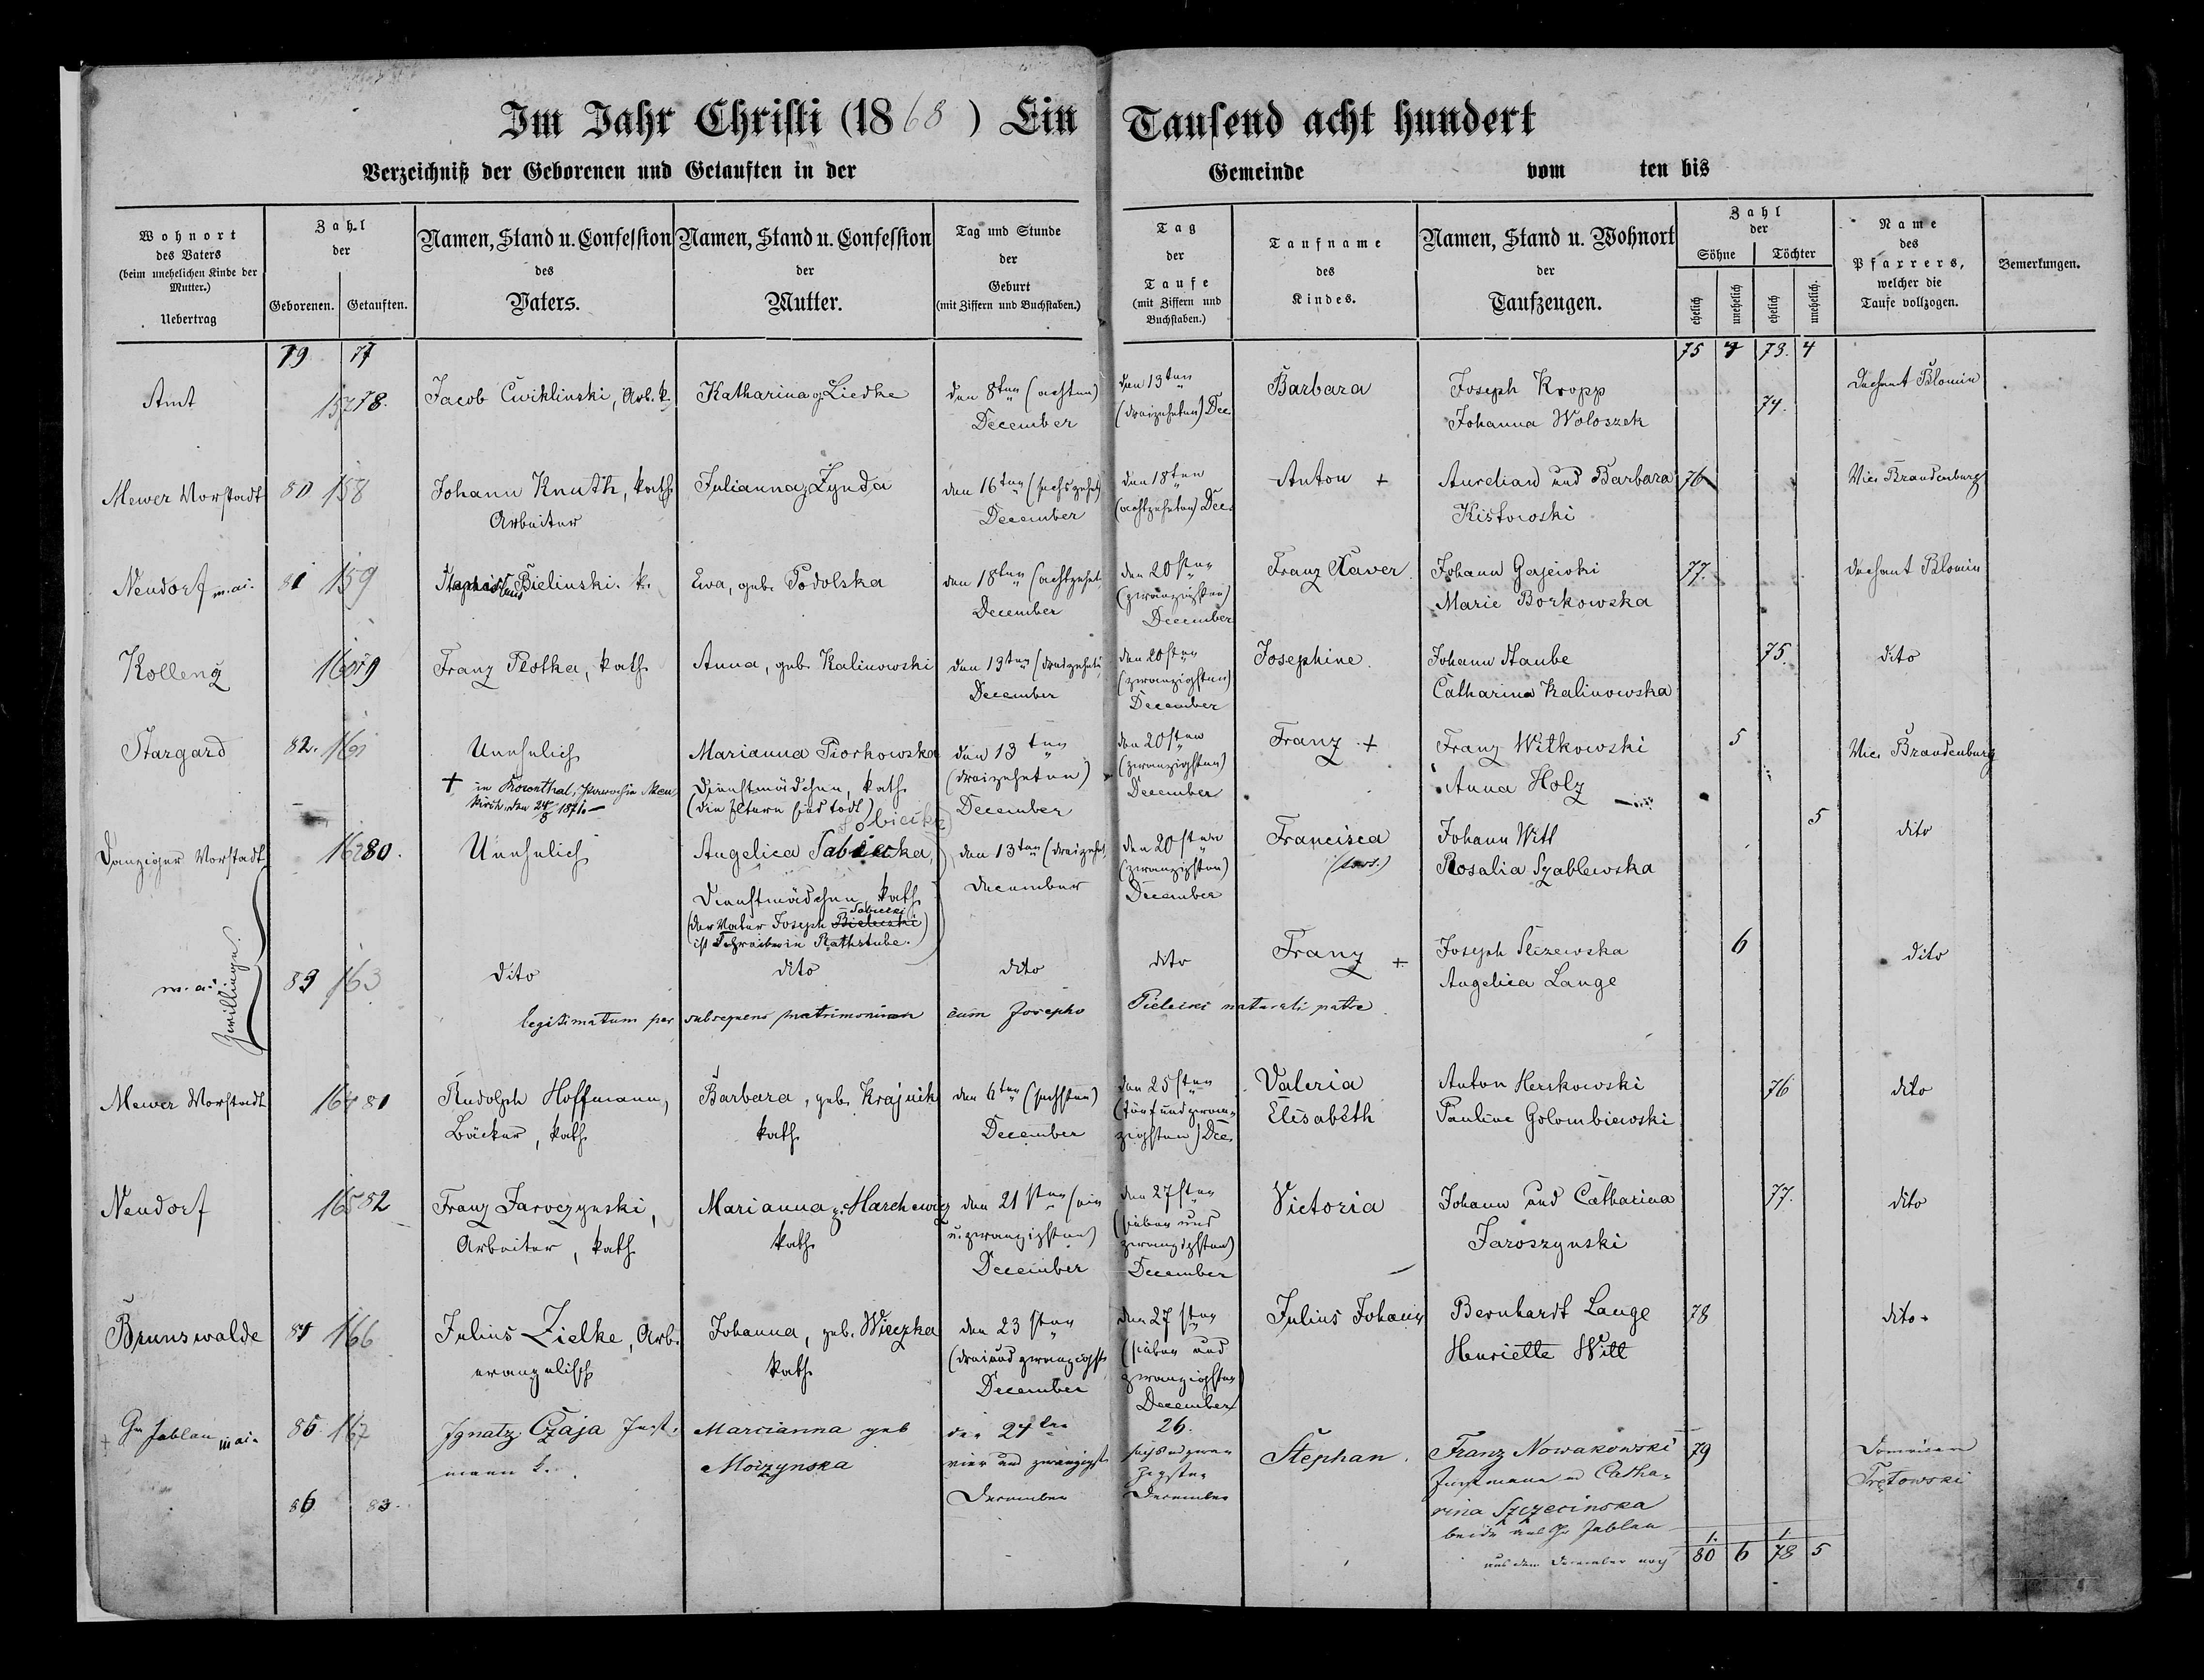 Im Jahr Christi (1868) Ein Tausend acht hundert
Verzeichniß der Geborenen und Getauften in der Gemeinde vom ten bis
Wohnort des Vaters (beim unehelichen Kinde der Mutter.)
Uebertrag
Zahl der
Geborenen. Getauften.
Namen, Stand u. Confession des Vaters.
Namen, Stand u. Confession der Mutter.
Tag und Stunde der Geburt (mit Ziffern und Buchstaben.)
Tag der Taufe (mit Ziffern und Buchstaben.)
Taufname des Kindes.
Namen, Stand u. Wohnort der Taufzeugen.
Zahl der
Söhne Töchter
ehelich unehelich ehelich unehelich.
Name des Pfarrers, welcher die Taufe vollzogen.
Bemerkungen.
79 77
75 4 73. 4
Amt
157 78.
Jacob Cwiklinski, Arb. k.
Katharina g. Liedke
den 8ten (achten)
December
den 13ten
(dreizehnten) Dec
Barbara
Joseph Kropp
Johanna Woloszek
74.
Dechant Blomin
Mewer Vorstadt
80 158
Johann Knuth, kath.
Arbeiter
Julianna g. Zynda
den 16ten (sechszehnt
December
den 18ten
(achtzehnten) Dec.
Anton +
Aurelian und Barbara
Kistowski
76
Vic. Brandenburg
Neudorf m. ai.
81 159
Bielinski. k.
Ewa, geb. Podolska
den 18ten (achtzehnt
December
den 20sten
(zwanzigsten)
December
Franz Xaver.
Johann Gajewski
Marie Borkowska
77.
Dechant Blomin
Kollenz
160 79
Franz Plotka, kath
Anna, geb. Kalinowski
den 13ten (dreizehnt
December
den 20sten
(zwanzigsten)
December
Josephine.
Johann Staube
Catharina Kalinowska
75.
dito
Stargard
82. 161
Unehelich
+ in Rosenthal,
den 24/8 1871.
Marianna Piorkowska
Dienstmädchen, kath
(die Eltern sind todt)
den 13ten
(dreizehnten)
December
den 20sten
(zwanzigsten)
December
Franz +
Franz Witkowski
Anna Holz
5
Vic. Brandenburg
Danziger Vorstadt
162 80.
Unehelich
Sobiecka
Angelica Sabiecka,
Dienstmädchen, kath
(der Vater Joseph Bielecki
ist Schreiber in Rathstube.)
den 13ten (dreizehnt
December
den 20sten
(zwanzigsten)
December
Francisca
Johann Witt
Rosalia Szablewska
5
dito
m. ai.
Zwillinge.
83 163
dito
dito
dito
dito
Franz +
Joseph Plizewska
Angelica Lange
6
dito
legitimatum per subsequens matrimonium cum Josepho Pielecki naturali patre.
Mewer Vorstadt
164 81
Rudolph Hoffmann,
Bäcker, kath
Barbara, geb. Krajnik
kath
den 6ten (sechsten)
December
den 25sten
(fünfundzwan-
zigsten) Dec.
Valeria
Elisabeth
Anton Herskowski
Pauline Golombiewski
76
dito
Neudorf
165 82
Franz Jaroczynski,
Arbeiter, kath
Marianna g. Marchewicz
kath
den 21sten (ein
u. zwanzigsten)
December
den 27sten
(sieben und
zwanzigsten)
December
Victoria
Johann und Catharina
Jaroszynski
77.
dito
Brunswalde
84 166
Julius Zielke, Arb.
evangelisch
Johanna, geb. Wieczka
kath
den 23sten
(dreiund zwanzigst
December
den 27sten
(sieben und
zwanzigsten)
December
Julius Johann
Bernhardt Lange
Henriette Witt
78
dito.
Gr Jablau m. ai.
85. 167
Ignatz Czaja Inst-
mann k.
Marcianna geb
Moizynska
den 24ten
vier und zwanzigst
December
26.
sechs und zwan
zigsten
December
Stephan.
Franz Nowakowski
Instmann u Catha-
rina Szczecinska
beide aus Gr Jablau
79
Domvicar
Tretowski
86 83.
aus dem December noch
1. 1
80 6 78 5